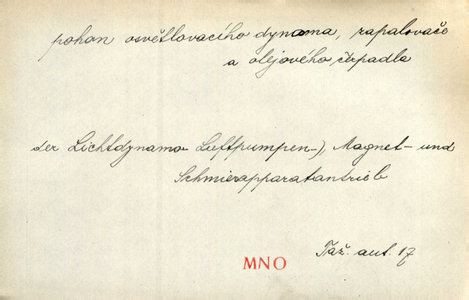 pohon osvětlovacího dynama, zapalovače
a olejového čerpadla
der Lichtdynamo- Luftpumpen-), Magnet- und
Schmierapparatantrieb
Taž. aut. 17
MNO